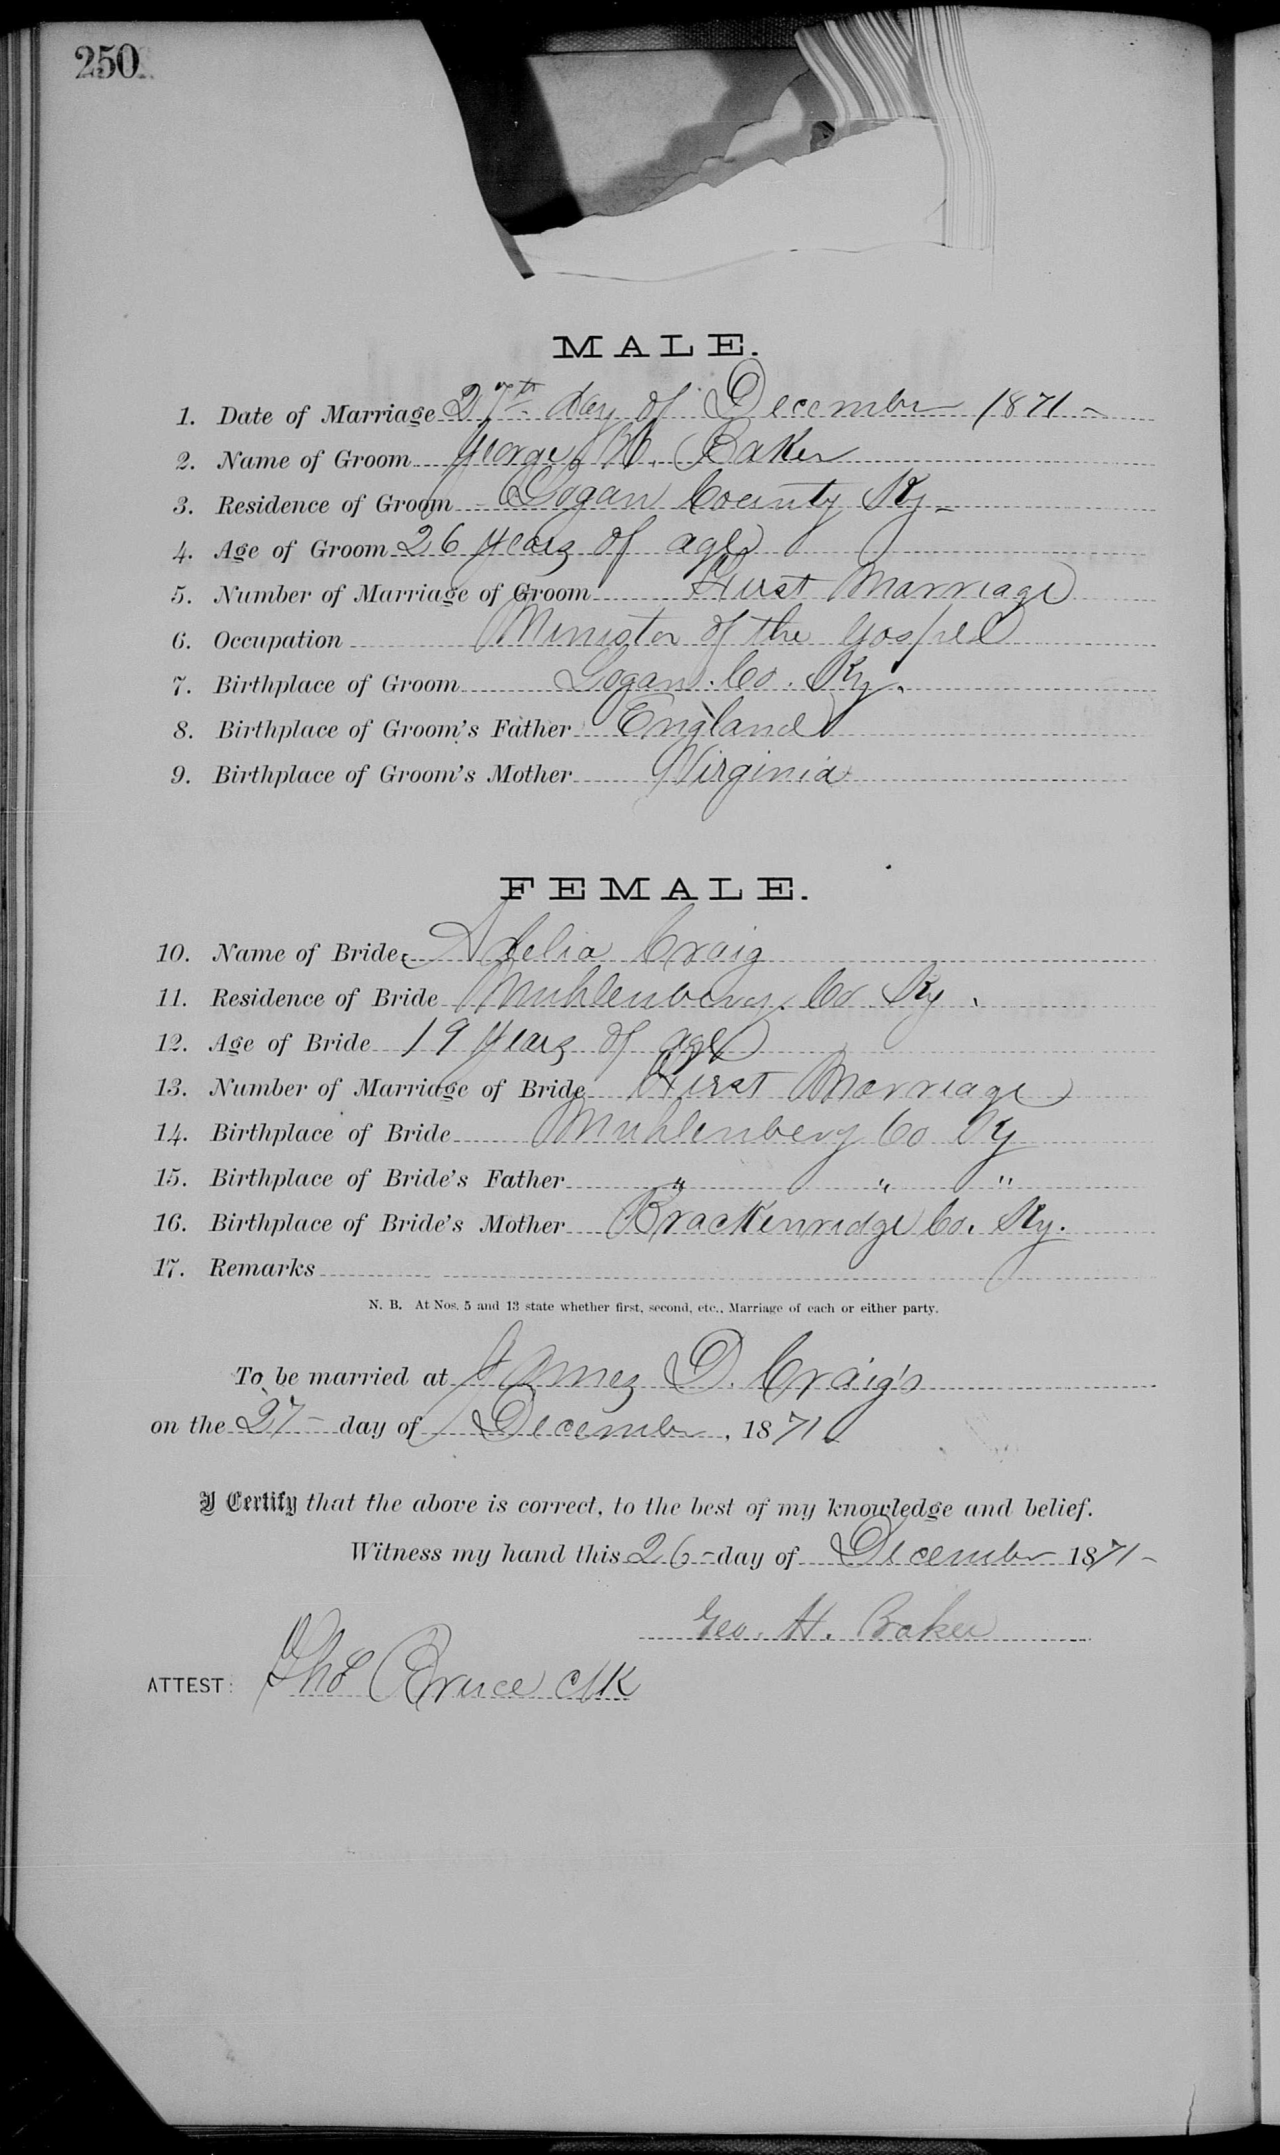 250
MALE.
1. Date of Marriage 27th day of December 1871
2. Name of Groom George H. Baker
3. Residence of Groom Logan County Ky
4. Age of Groom 26 years of age
5. Number of Marriage of Groom First Marriage
6. Occupation Minister of the Gospel
7. Birthplace of Groom Logan Co. Ky.
8. Birthplace of Groom's Father England
9. Birthplace of Groom's Mother Virginia
FEMALE.
10. Name of Bride Adelia Craig
11. Residence of Bride Muhlenberg Co Ky.
12. Age of Bride 19 years of age
13. Number of Marriage of Bride First Marriage
14. Birthplace of Bride Muhlenberg Co Ky
15. Birthplace of Bride's Father " " "
16. Birthplace of Bride's Mother Brackenridge Co. Ky.
17. Remarks
N. B. At Nos. 5 and 13 state whether first, second, etc., Marriage of each or either party.
To be married at James D. Craig's
on the 27 day of December, 1871
I Certify that the above is correct, to the best of my knowledge and belief.
Witness my hand this 26 day of December 1871
Geo. H. Baker
ATTEST: Tho Bruce Clk